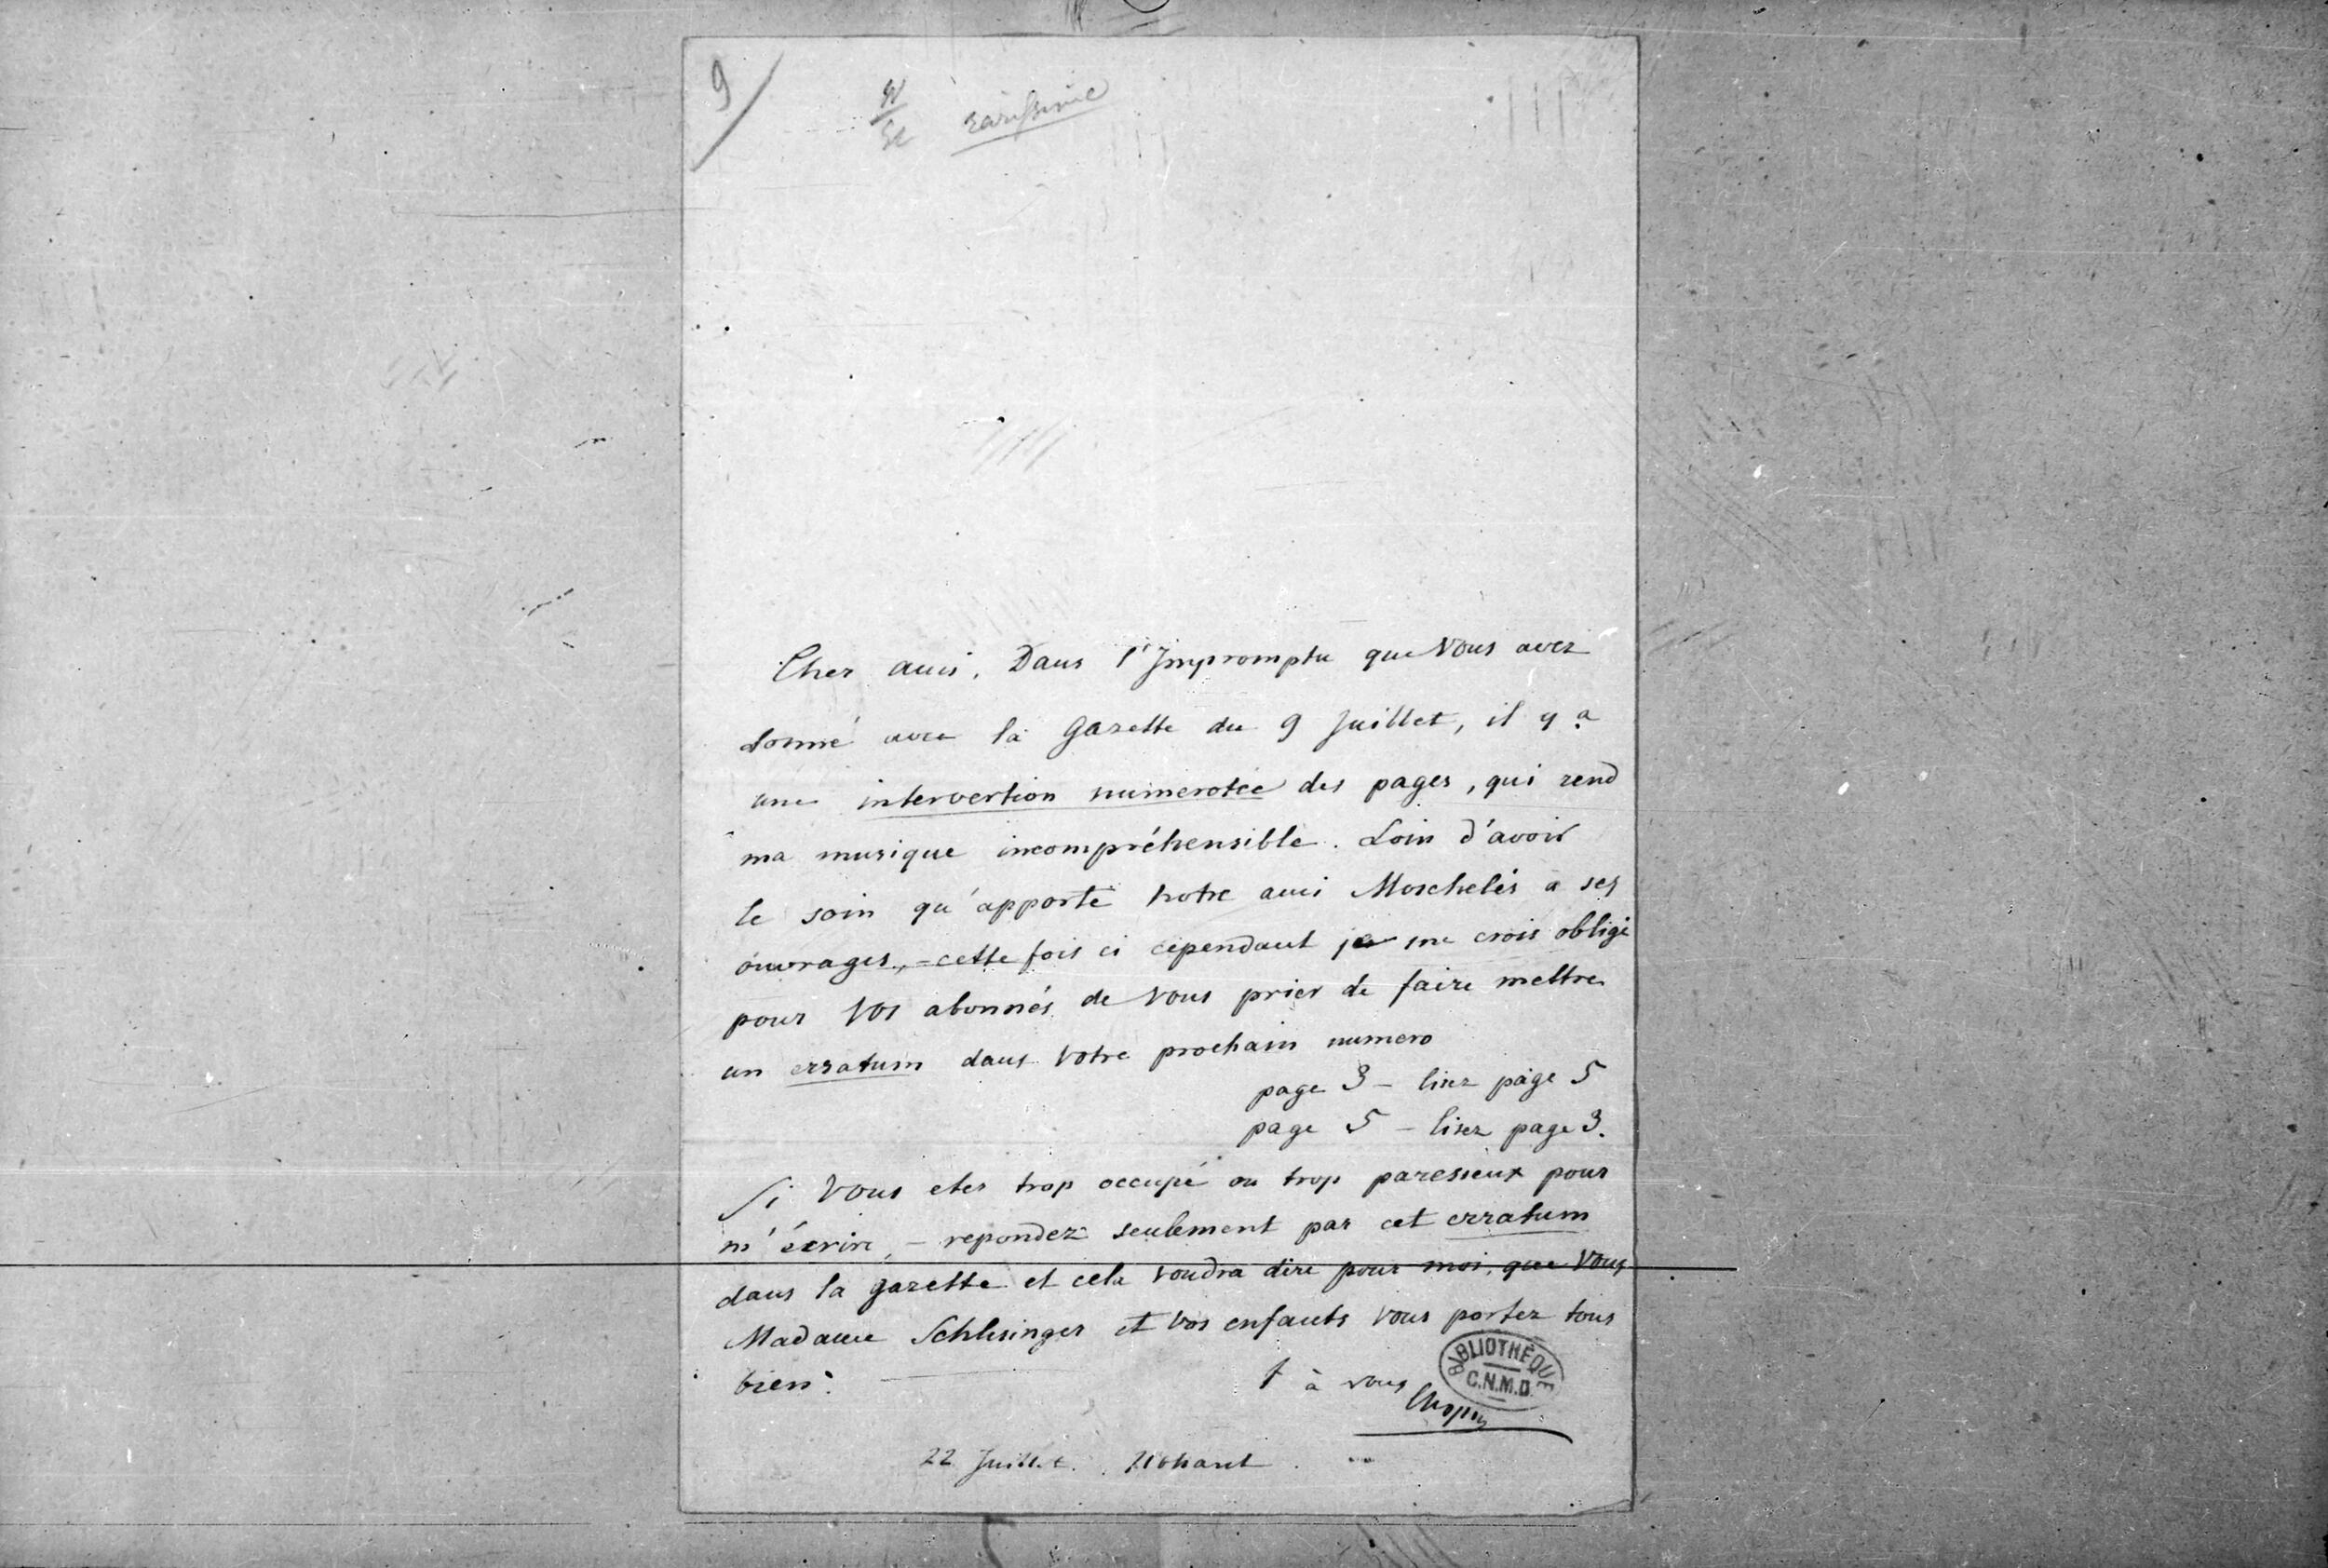 9
rarissime
Cher ami. Dans l'Impromptu que Vous avez
donné avec la Gazette du 9 Juillet, il y a
une intervertion numerotée des pages, qui rend
ma musique incompréhensible. Loin d'avoir
le soin qu'apporte notre ami Moschelès à ses
ouvrages, - cette fois ci cependant je me crois obligé
pour Vos abonnés de Vous prier de faire mettre
un erratum dans Votre prochain numero
page 3 - lisez page 5
page 5 - lisez page 3.
Si Vous etes trop occupé ou trop paresseux pour
m'écrire, - repondez seulement par cet erratum
dans la gazette et cela voudra dire pour moi, que Vous
Madame Schlesinger et Vos enfants Vous portez tous
bien.
t à vous
Chopin
BIBLIOTHÈQUE
C.N.M.D.
22 Juillet. Nohant.